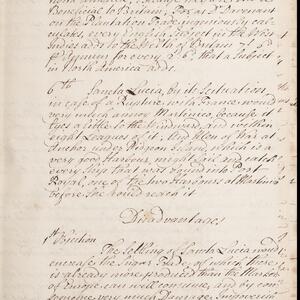 Beneficial to Britain; For as D'Avenant
on the Plantation Trade ingeniously cal-
culates, every English Subject in the West
Indies adds to the Wealth of Britain
for every that a Subject
in North America adds.
6th Santa Lucia, by its Scituation
in case of a Rupture with France would
very much annoy Martinico, because it
lyes a little to the Windward and within
eight Leagues of it; and Men of War at
Anchor under Pidgeon Island, which is a
very good Harbour, might Sail and catch
every Ship that was bound into Port
Royal, one of the two Harbours at Martinico
before She could reach it.
Disadvantages
1st Objection
The Settling of Santa Lucia would
encrease the Sugar Trade, of which there
is already more produced than the Markets
of Europe can well consume, and by con-